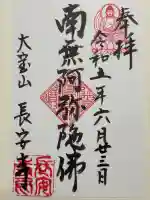 奉拝
令和五年六月廿三日
南無阿弥陀佛
大宝山
長安寺